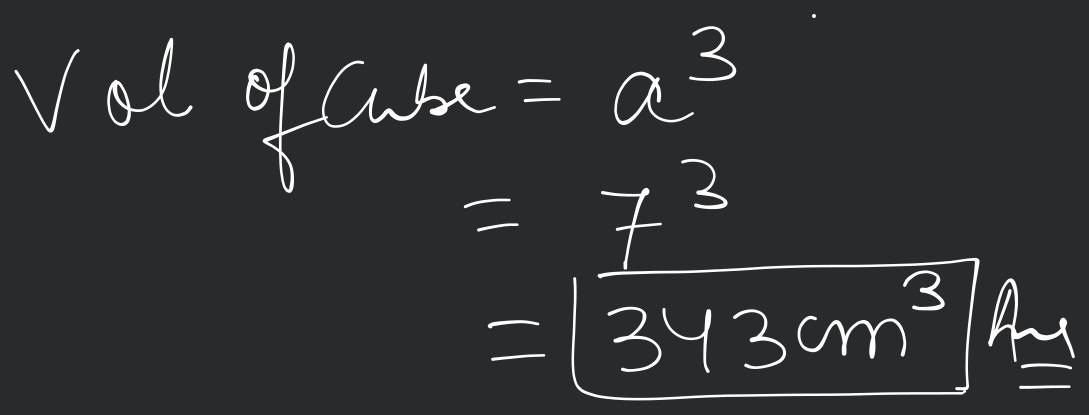 Vol of Cube = a³
= 7³
= 343cm³ Ans